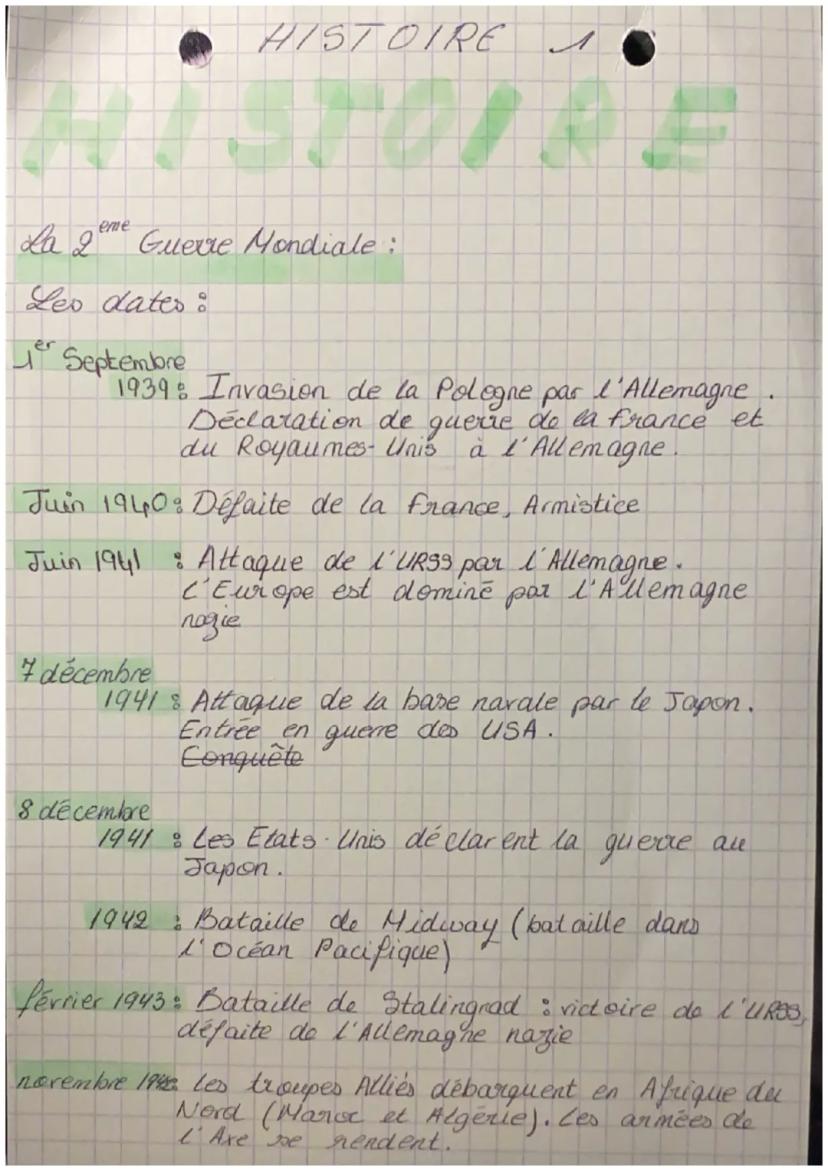 HISTOIRE 1
HISTOIRE
La 2eme Guerre Mondiale :
Les dates :
1er Septembre
1939 : Invasion de la Pologne par l'Allemagne.
Déclaration de guerre de la france et
du Royaumes-Unis à l'Allemagne.
Juin 1940 : Défaite de la france, Armistice
Juin 1941 : Attaque de l'URSS par l'Allemagne.
L'Europe est dominé par l'Allemagne
nazie
7 décembre
1941 : Attaque de la base navale par le Japon.
Entrée en guerre des USA.
Conquête
8 décembre
1941 : Les Etats-Unis déclarent la guerre au
Japon.
1942 : Bataille de Midway (bataille dans
l'Océan Pacifique)
février 1943 : Bataille de Stalingrad : victoire de l'URSS,
défaite de l'Allemagne nazie
novembre 1942 Les troupes Alliés débarquent en Afrique du
Nord (Maroc et Algérie). Les armées de
l'Axe se rendent.